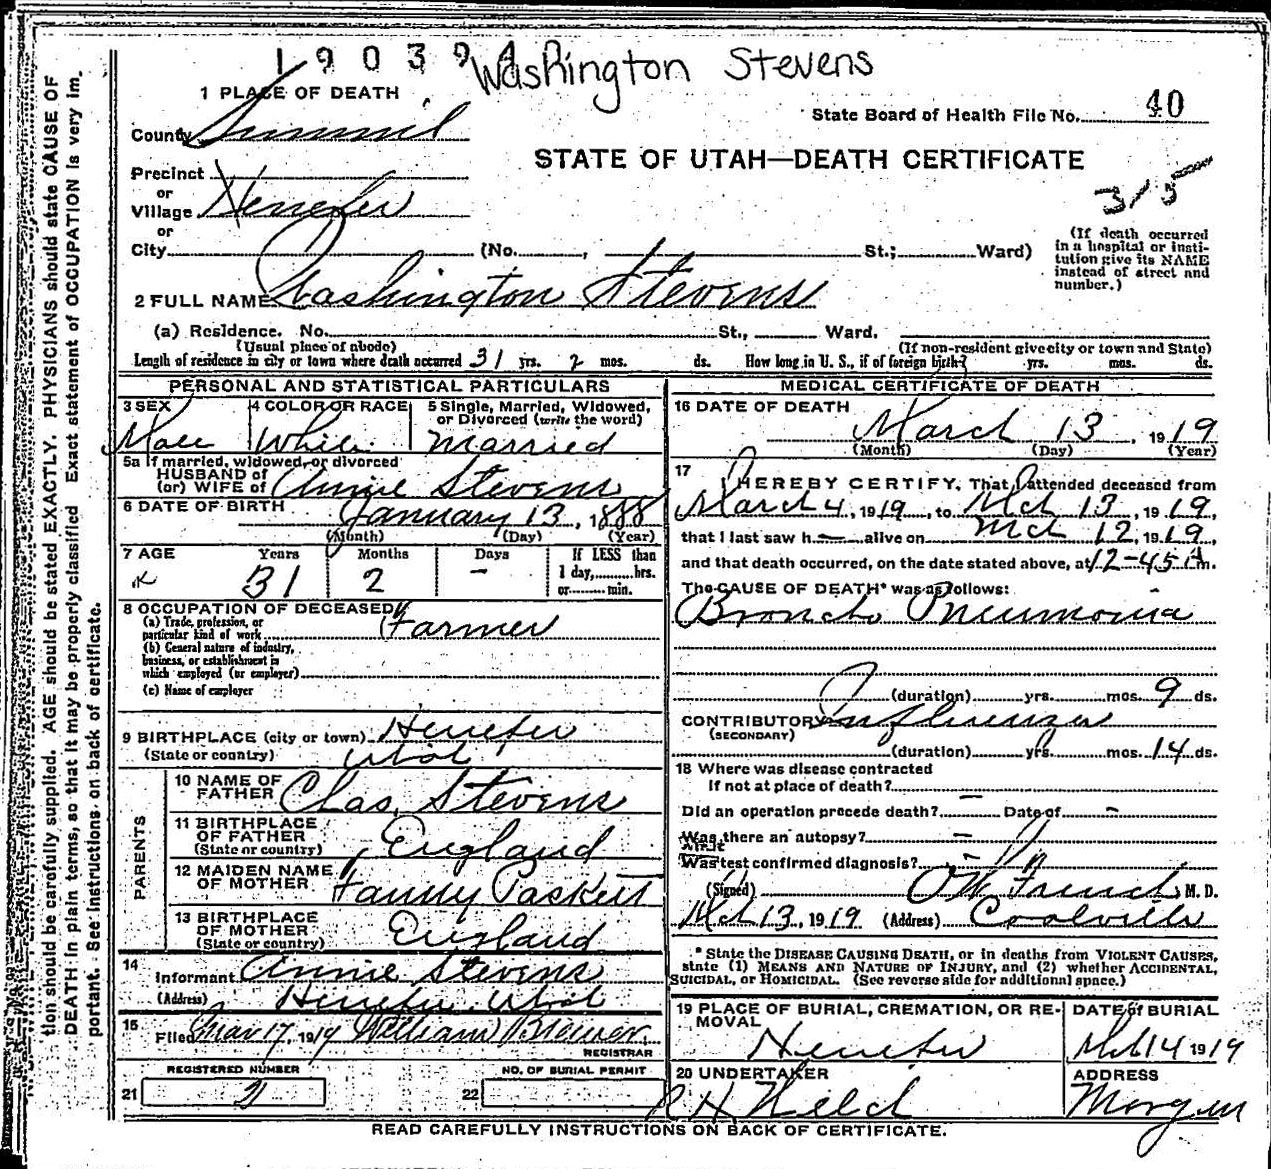 190394 Washington Stevens
1 PLACE OF DEATH
State Board of Health File No. 40
County Summit
STATE OF UTAH—DEATH CERTIFICATE
315
Precinct
or
Village Henefer
or
City (No. , St.; Ward)
(If death occurred
in a hospital or insti-
tution give its NAME
instead of street and
number.)
2 FULL NAME Washington Stevens
(a) Residence. No. St., Ward.
(Usual place of abode) (If non-resident give city or town and State)
Length of residence in city or town where death occurred 31 yrs. 2 mos. ds. How long in U. S., if of foreign birth? yrs. mos. ds.
PERSONAL AND STATISTICAL PARTICULARS
3 SEX Male
4 COLOR OR RACE White
5 Single, Married, Widowed,
or Divorced (write the word)
Married
5a If married, widowed, or divorced
HUSBAND of
(or) WIFE of Annie Stevens
6 DATE OF BIRTH January 13, 1888
(Month) (Day) (Year)
7 AGE Years Months Days If LESS than
31 2 - 1 day, hrs.
or min.
8 OCCUPATION OF DECEASED
(a) Trade, profession, or
particular kind of work Farmer
(b) General nature of industry,
business, or establishment in
which employed (or employer)
(c) Name of employer
9 BIRTHPLACE (city or town) Henefer
(State or country) Utah
PARENTS
10 NAME OF
FATHER Chas. Stevens
11 BIRTHPLACE
OF FATHER
(State or country) England
12 MAIDEN NAME
OF MOTHER Fanny Paskett
13 BIRTHPLACE
OF MOTHER
(State or country) England
14
Informant Annie Stevens
(Address) Henefer Utah
15
Filed Mar 17, 1919 William Brewer
REGISTRAR
REGISTERED NUMBER NO. OF BURIAL PERMIT
21 22
MEDICAL CERTIFICATE OF DEATH
16 DATE OF DEATH
March 13, 1919
(Month) (Day) (Year)
17
I HEREBY CERTIFY, That I attended deceased from
March 4, 1919, to Mch 13, 1919,
that I last saw h alive on Mch 12, 1919,
and that death occurred, on the date stated above, at 12-45 A m.
The CAUSE OF DEATH* was as follows:
Broncho Pneumonia
(duration) yrs. mos. 9 ds.
CONTRIBUTORY Influenza
(SECONDARY)
(duration) yrs. mos. 14 ds.
18 Where was disease contracted
if not at place of death? —
Did an operation precede death? Date of -
Was there an autopsy? —
What
Was test confirmed diagnosis? -
(Signed) French M. D.
Mch 13, 1919 (Address) Coalville
* State the DISEASE CAUSING DEATH, or in deaths from VIOLENT CAUSES,
state (1) MEANS AND NATURE OF INJURY, and (2) whether ACCIDENTAL,
SUICIDAL, or HOMICIDAL. (See reverse side for additional space.)
19 PLACE OF BURIAL, CREMATION, OR RE-
MOVAL
Henefer
DATE of BURIAL
Mch 14 1919
20 UNDERTAKER
ADDRESS
Morgan
READ CAREFULLY INSTRUCTIONS ON BACK OF CERTIFICATE.
tion should be carefully supplied. AGE should be stated EXACTLY. PHYSICIANS should state CAUSE OF
DEATH in plain terms, so that it may be properly classified Exact statement of OCCUPATION is very im-
portant. See instructions on back of certificate.